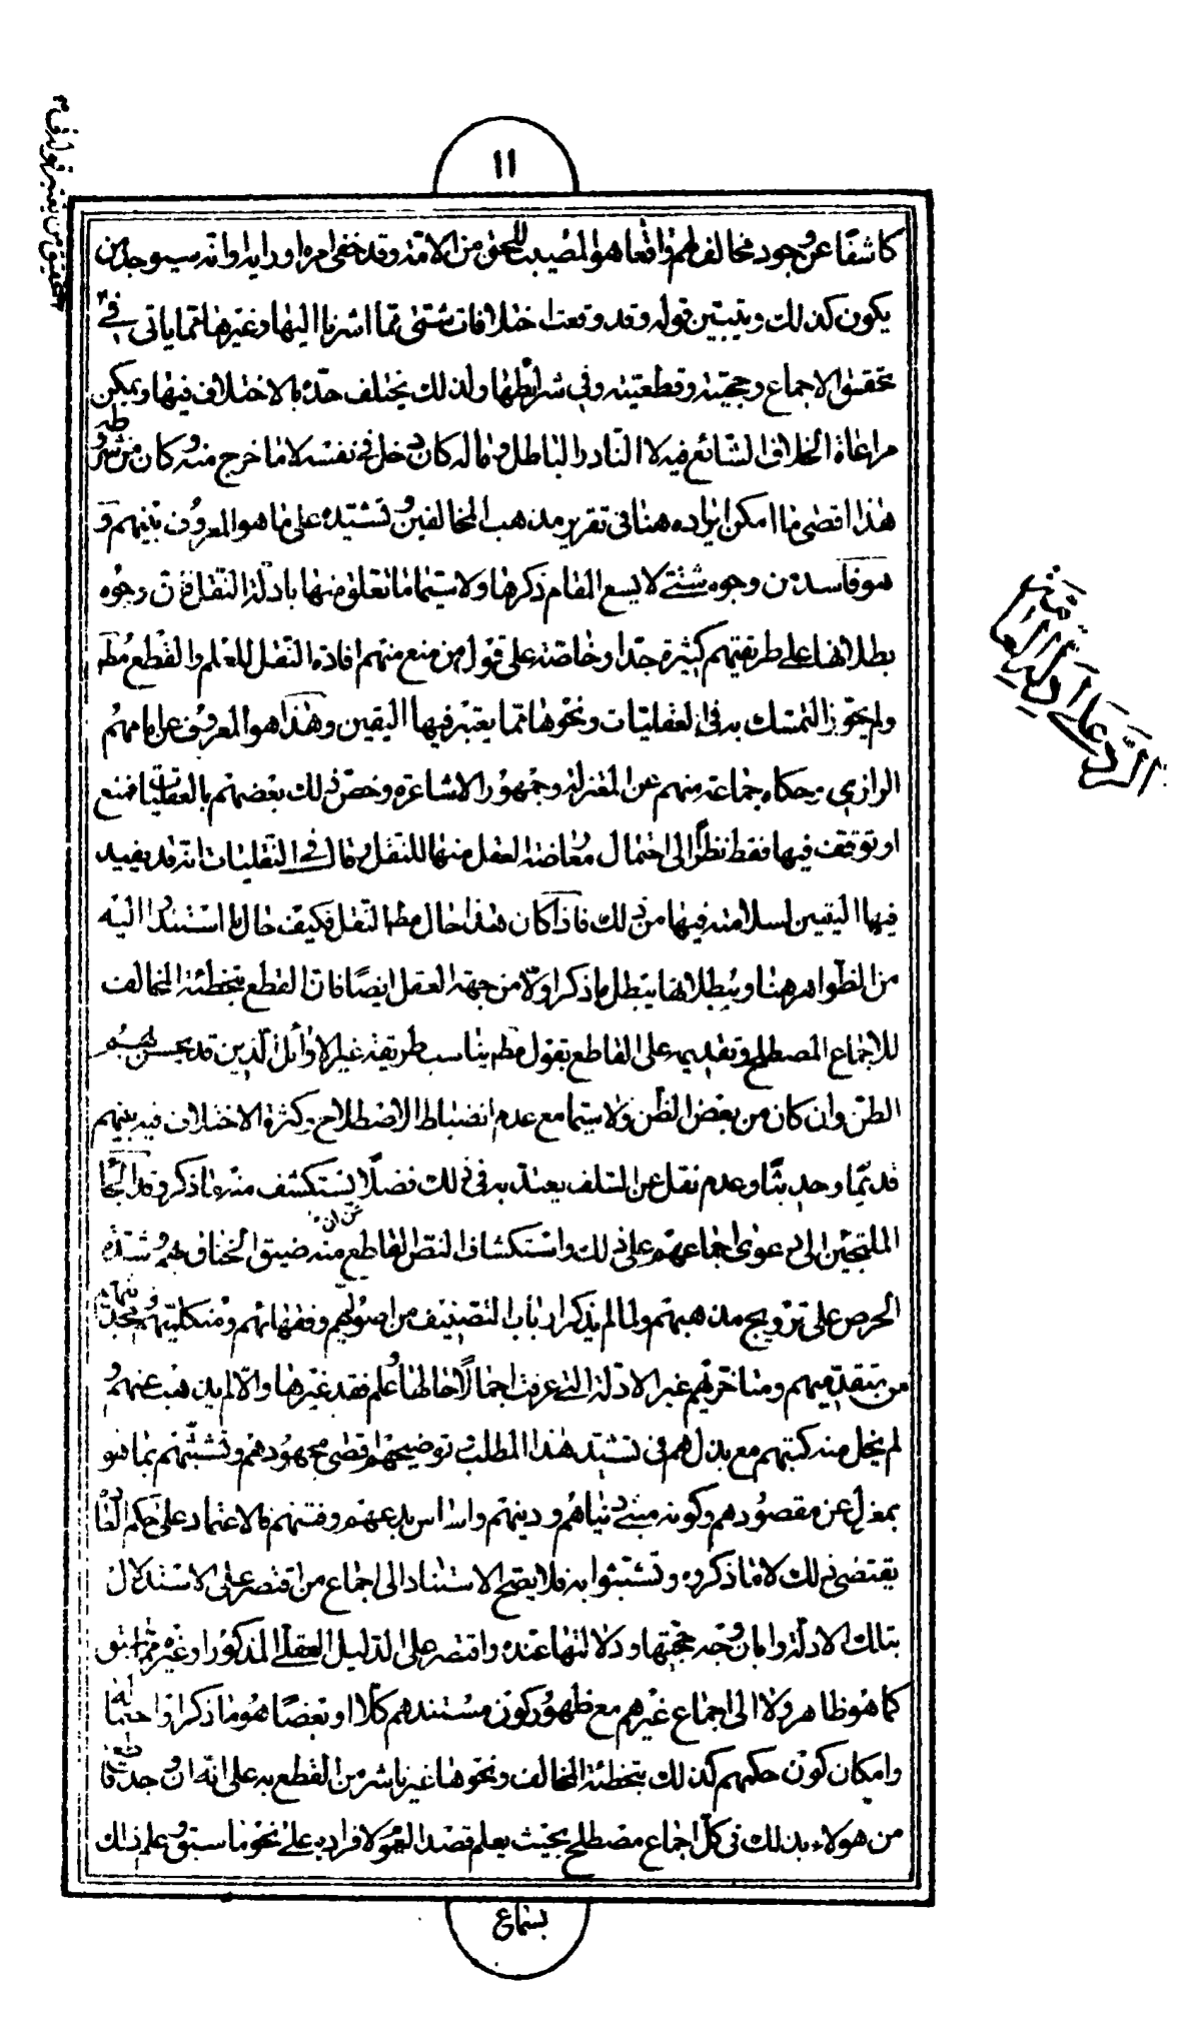 ١١
كاشفا عن وجود مخالف لهم واقعا هو المصيب للحق من الامة وقد خفى امره او رايه او انه سيوجد من
يكون كذلك ويتبين قوله وقد وقعت اختلافات شتى مما اشرنا اليها وغيرها مما ياتى فى
تحقق الاجماع وحجيته وقطعيته وفى شرائطها ولذلك يختلف حده بالاختلاف فيها ويمكن
مراعاة الخلاف الشائع فيه لا النادر الباطل وما له كان دخل فى نفسه لا ما خرج منه وكان من شروطه
هذا اقصى ما امكن ايراده هنا فى تقرير مذهب المخالفين وتشييده على ما هو المعروف بينهم و
هو فاسد من وجوه شتى لا يسع المقام ذكرها ولا سيما ما تعلق منها بادلة النقل فان وجوه
بطلانها على طريقتهم كثيرة جدا وخاصة على قول من منع منهم افادة النقل للعلم والقطع مط
ولم يجوز التمسك به فى العقليات ونحوها مما يعتبر فيها اليقين وهذا هو المعروف عن امامهم
الرازى وحكاه جماعة منهم عن المعتزلة وجمهور الاشاعرة وخص ذلك بعضهم بالعقليات فمنع
او توقف فيها فقط نظرا الى احتمال معارضة العقل منها للنقل وقال فى النقليات انه قد يفيد
فيها اليقين لسلامته فيها من ذلك فاذا كان هذا حال مط النقل فكيف حال ما استندوا اليه
من الظواهر هنا ويبطلانها يبطل ما ذكر اولا من جهة العقل ايضا فان القطع بتخطئة المخالف
للاجماع المصطلح وتقديمه على القاطع بقول مط يناسب طريقة غير الاوائل الذين قد يحسن بهم
الظن وان كان من بعض الظن ولا سيما مع عدم انضباط الاصطلاح وكثرة الاختلاف فيه بينهم
قديما وحديثا وعدم نقل عن السلف يعتد به فى ذلك فضلا عن ان يستكشف منه ما ذكر وقد الجأ
الملتجئين الى دعوى اجماعهم على ذلك واستكشاف النص القاطع منه ضيق الخناق بهم وشدة
الحرص على ترويج مذهبهم ولما لم يذكر ارباب التصنيف من اصوليهم وفقهائهم ومتكلميهم ومحدثيهم
من متقدميهم ومتاخريهم غير الادلة التى عرفت اجمالا حالها وعلم فقد غيرها والا لم يذهب عنهم و
لم يخل منه كتبهم مع بذلهم فى تشييد هذا المطلب وتوضيحه اقصى مجهودهم وتشبثهم بما هو
بمعزل عن مقصودهم وكونه مبنى دنياهم ودينهم واساس بدعهم وفتنهم فالاعتماد على حكم العادة
يقتضى ذلك لا ما ذكروه وتشبثوا به فلا يصح الاستناد الى اجماع من اقتصر على الاستدلال
بتلك الادلة وابان وجه حجيتها ودلالتها عنده واقتصر على الدليل العقلى المذكور او غيره مما سبق
كما هو ظاهر ولا الى اجماع غيرهم مع ظهور كون مستندهم كلا او بعضا هو ما ذكر او احتماله
وامكان كون حكمهم كذلك بتخطئة المخالف ونحوها غير ناش من القطع به على انه ان وجد اتفاق
من هؤلاء بذلك فى كل اجماع مصطلح بحيث يعلم قصد العموم لافراده على نحو ما سبق وعلم ذلك
بسماع
الرد على ادلة العامة